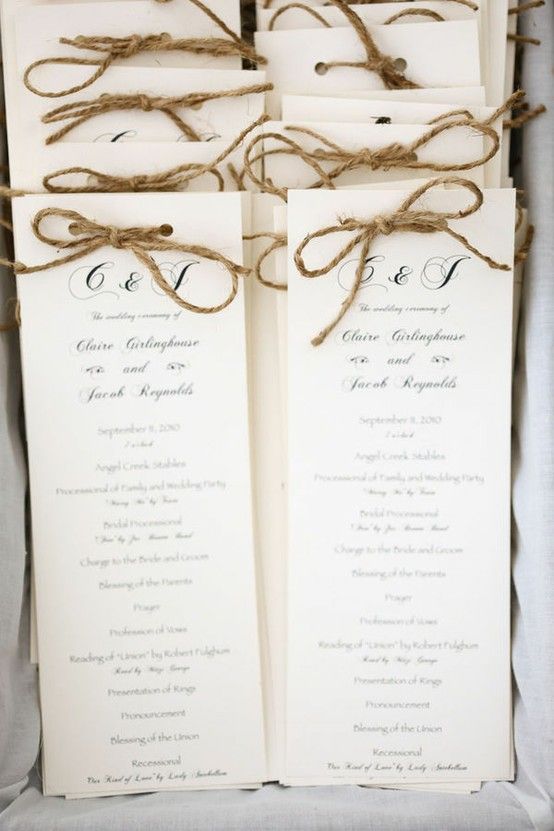 C & J
The wedding ceremony of
Claire Girlinghouse
and
Jacob Reynolds
September 11, 2010
2 o'clock
Angel Creek Stables
Processional of Family and Wedding Party
"Marry Me" by Train
Bridal Processional
by
Charge to the Bride and Groom
Blessing of the Parents
Prayer
Profession of Vows
Reading of "Union" by Robert Fulghum
Read by George
Presentation of Rings
Pronouncement
Blessing of the Union
Recessional
"Our Kind of Love" by Lady Antebellum
C & J
The wedding ceremony of
Claire Girlinghouse
and
Jacob Reynolds
September 11, 2010
2 o'clock
Angel Creek Stables
Processional of Family and Wedding Party
"Marry Me" by Train
Bridal Processional
by
Charge to the Bride and Groom
Blessing of the Parents
Prayer
Profession of Vows
Reading of "Union" by Robert Fulghum
Read by George
Presentation of Rings
Pronouncement
Blessing of the Union
Recessional
"Our Kind of Love" by Lady Antebellum